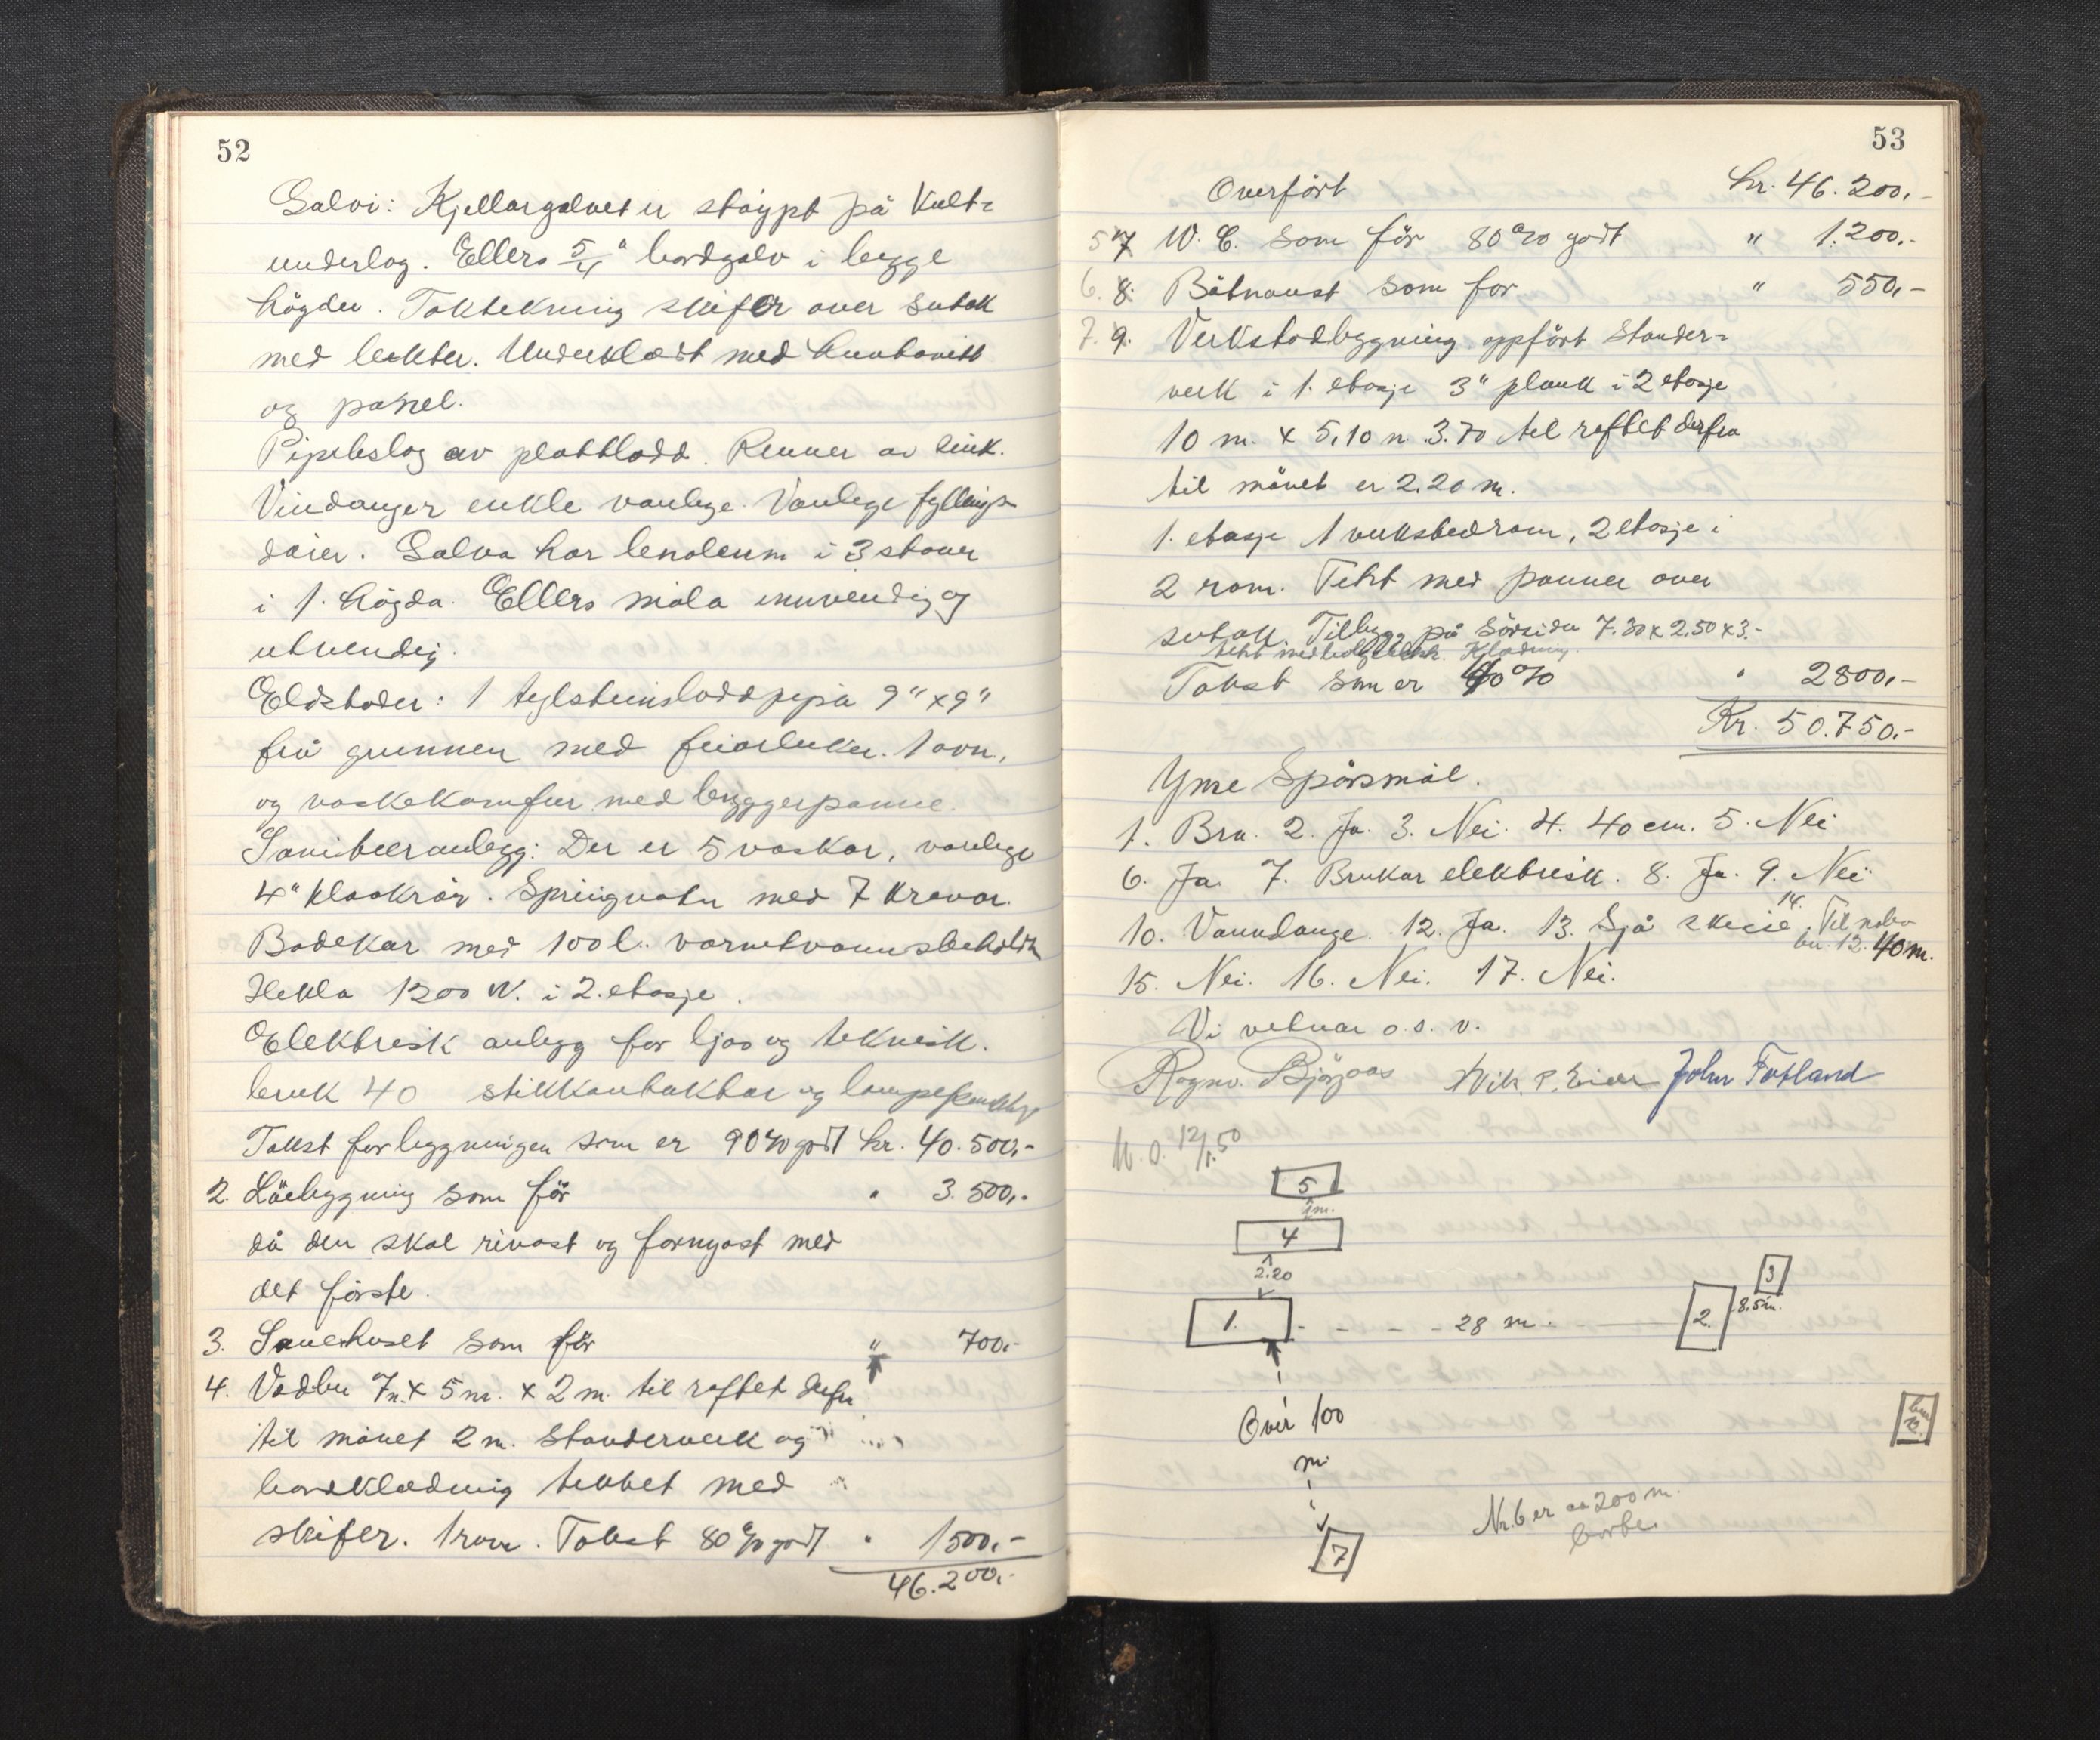 52
Golvi: Kjellargolvet er støypt på Kult=
underlag. Ellers 5/4" bordgolv i begge
högder. Taktekning skifer over sutak
med lekter. Underklædt med huntonitt
og panel.
Pipebslag av plattlodd. Renner av sink.
Vindauger enkle vanlege. Vanlege fyllings
dører. Golva har lenoleum i 3 stover
i 1. högda. Ellers måla innvendig og
utvendig.
Eldstader: 1 teglsteinsloddpipa 9" x 9"
frå grunnen med feiarluker. 1 ovn,
og vaskekomfur med bryggerpanne.
Sanitæranlegg: Der er 5 vaskar, vanlege
4" kloakrör. Springvatn med 7 kranar.
Badekar med 100 l. varmtvannsbeholdar
Hekla 1200 W. i 2. etasje.
Elektrisk anlegg for ljos og teknisk.
bruk 40 stikkontaktar og lampe
Takst for bygningen som er 90% godt kr. 40.500,-
2. Löebygning som för " 3.500,-
då den skal rivast og fornyast med
det förste.
3. Sauehuset som för " 700,-
4. Vedbu 7 m. x 5 m. x 2 m. til raftet derfra
til mönet 2 m. Standerverk og
bordklædning tekket med
skifer. 1 rom. Takst 80% godt " 1500,-
46.200,-
53
Overfört kr. 46.200,-
5 7 W. C. som för 80% godt " 1.200,-
6. 8. Båtnaust som for " 550,-
7. 9. Verkstadbygning oppfört stander=
verk i 1. etasje 3" plank i 2 etasje
10 m. x 5,10 m. 3.70 til raftet derfra
til mönet er 2.20 m.
1. etasje 1 verkstedrom, 2 etasje i
2 rom. Tekt med panner over
sutak. Tilbygg på Sörsida 7.30 x 2.50 x 3.-
tekt med Klædning.
Takst som er 90% " 2800,-
Kr. 50.750,-
Ymse Spörsmål.
1. Bra. 2. Ja. 3. Nei. 4. 40 cm. 5. Nei
6. Ja. 7. Brukar elektrisk. 8. Ja. 9. Nei.
10. Vanndauge. 12. Ja. 13. Sjå skisse. 14. Til nabo
bn. 12. 40 m.
15. Nei. 16. Nei. 17. Nei.
Vi vetnar o.s.v.
Ragnv. Björgaas Nik. P. Eide John Fotland
M. O. 12/1.50
5
2m.
4
2.20
3
8.5m.
1. 28 m. 2.
Over 100
m.
bn.
12.
Nr. 6 er ca 200 m.
borte.
7